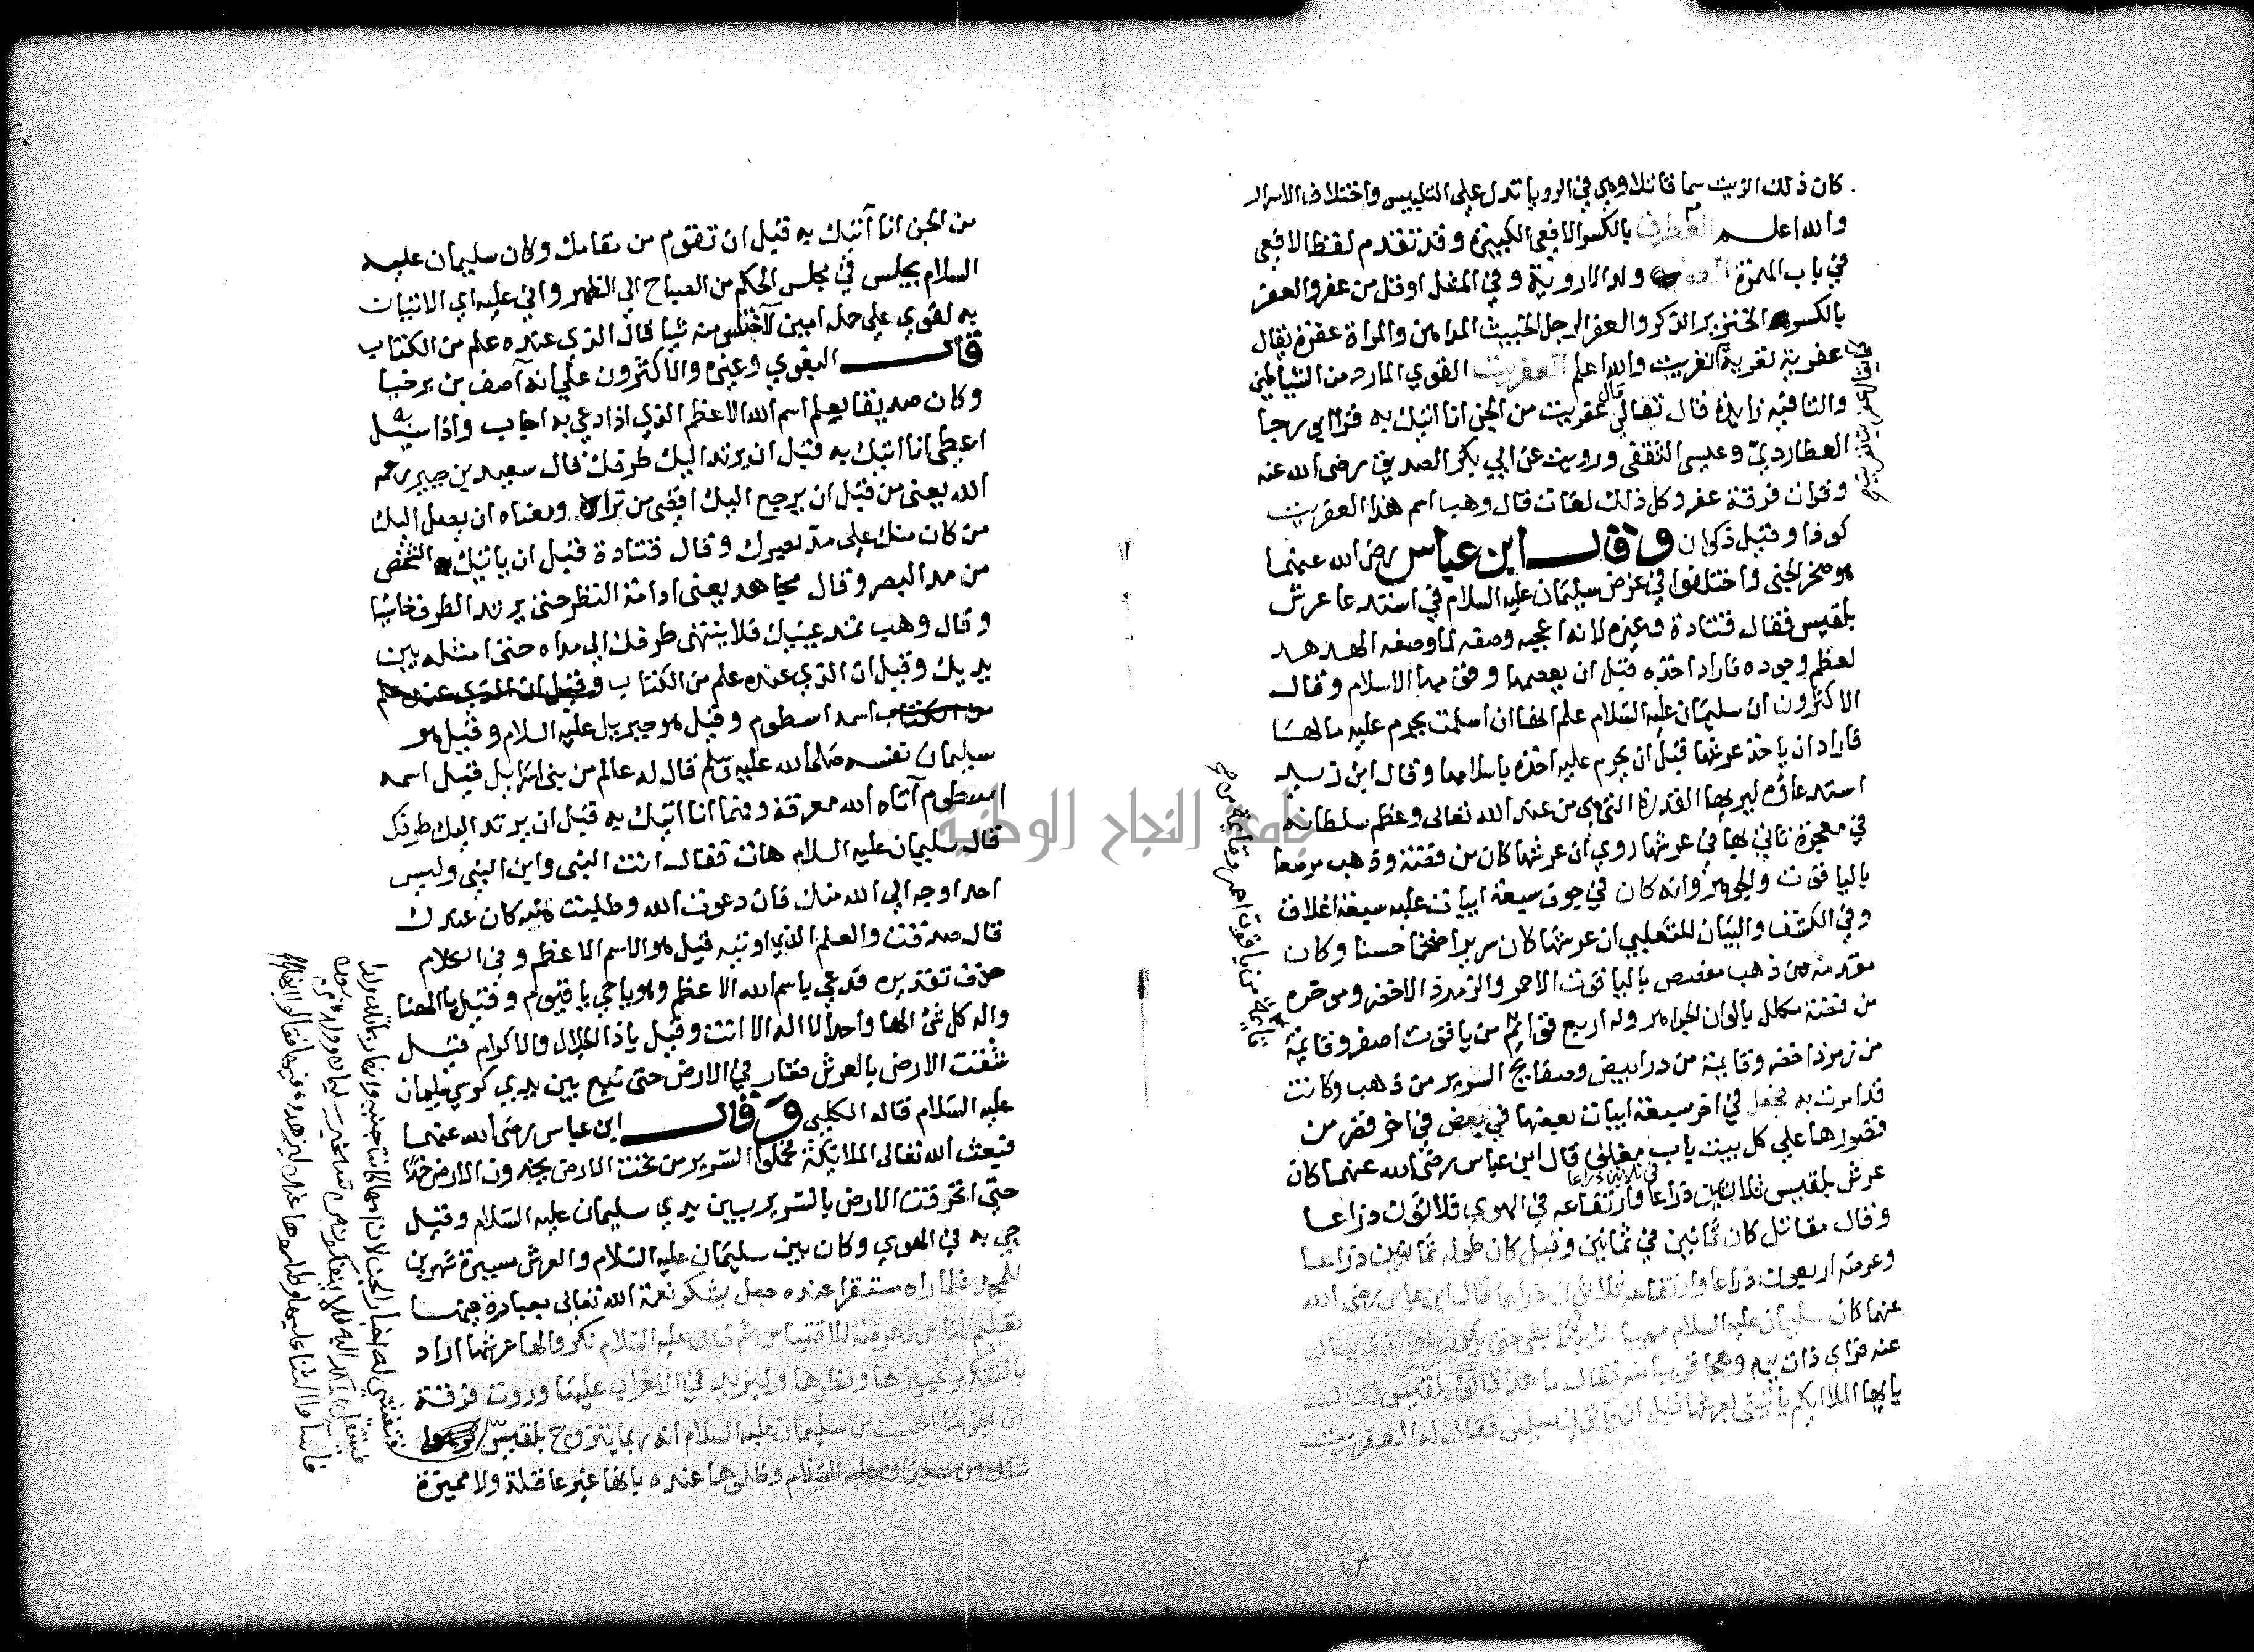 كان ذلك الزيت سما قاتلا وهي في الرويا تدل على التلبيس واختلاف الاسرار
والله اعلم العطرف بالكسر الافعى الكبيرة وقد تقدم لفظ الافعى
في باب الهمزة ولد الاروية وفي المثل اوقل من عفر والعفر
بالكسر الخنزير الذكر والعفر الرجل الخبيث الداهن والمراة عفرة يقال
عفرية نفرية والله اعلم العفريت القوي المارد من الشياطين
والتا فيه زايدة قال تعالى قال عفريت من الجن انا اتيك به قرا ابي رجا
العطاردي وعيسى الثقفي ورويت عن ابي بكر الصديق رضى الله عنه
وقرات فرقة عفر وكل ذلك لغات قال وهب اسم هذا العفريت
كوذا وقيل ذكوان وقال ابن عباس رضى الله عنهما
هو صخر الجنى واختلفوا في غرض سليمان عليه السلام في استدعا عرش
بلقيس فقال قتادة وغيره لانه اعجبه وصفه لما وصفه الهدهد
لعظم وجوده فاراد اخذه قبل ان يعصمها وقومها الاسلام وقال
الاكثرون ان سليمان عليه السلام علم انها ان اسلمت يحرم عليه مالها
فاراد ان ياخذ عرشها قبل ان يحرم عليه اخذه باسلامها وقال ابن زيد
استدعاؤه ليريها القدرة التي هي من عند الله تعالى وعظم سلطانه
في معجزة تاتي بها في عرشها روي ان عرشها كان من فضة وذهب مرصعا
باليا قوت والجوهر وانه كان في جوف سبعة ابيات عليه سبعة اغلاق
وفي الكشف والبيان للثعلبي ان عرشها كان سريرا ضخما حسنا وكان
مقدمه من ذهب مفصص بالياقوت الاحمر والزمرد الاخضر وموخره
من فضة مكلل بالوان الجواهر وله اربع قوائم من ياقوت اصفر وقايمة
من زمرذ اخضر وقايمة من در ابيض وصفايح السرير من ذهب وكانت
قد امرت به فجعل في اخر سبعة ابيات بعضها في بعض في اخر قصر من
قصورها على كل بيت باب مغلق قال ابن عباس رضى الله عنهما كان
عرش بلقيس ثلاثين ذراعا في ثلاثين ذراعا وارتفاعه في الهوي ثلاثون ذراعا
وقال مقاتل كان ثمانين في ثمانين وقيل كان طوله ثمانين ذراعا
وعرضه اربعون ذراعا وارتفاعه ثلاثون ذراعا قال ابن عباس رضى الله
عنهما كان سليمان عليه السلام مهيبا لا يبتدا بشي حتى يكون هو الذي يسال
عنه فراى ذات يوم رهجا قريبا منه فقال ما هذا قالوا هذا عرش بلقيس فقال
يا يها الملا ايكم ياتيني بعرشها قبل ان ياتوني مسلمين فقال له العفريت
من
من الجن انا آتيك به قبل ان تقوم من مقامك وكان سليمان عليه
السلام يجلس في مجلس الحكم من الصباح الى الظهر واني عليه اي الاتيان
به لقوي على حمله امين لا اختلس منه شيا قال الذي عنده علم من الكتاب
قال البغوي وغيره والاكثرون على انه آصف بن برخيا
وكان صديقا يعلم اسم الله الاعظم الذي اذا دعي به اجاب واذا سيل به
اعطى انا اتيك به قبل ان يرتد اليك طرفك قال سعيد بن جبير رحمه
الله يعنى من قبل ان يرجع اليك اقصى من تراه ومعناه ان يصل اليك
من كان منك على مد بصرك وقال قتادة قبل ان ياتيك الشخص
من مد البصر وقال مجاهد يعنى ادامة النظر حتى يرتد الطرف خاسيا
وقال وهب تمد عينيك فلا ينتهى طرفك الى مداه حتى امثله بين
يديك وقيل ان الذي عنده علم من الكتاب وقيل ان الذي عنده علم
من الكتاب اسمه اسطوم وقيل هو جبريل عليه السلام وقيل هو
سليمان نفسه صلى الله عليه وسلم قال له عالم من بنى اسرائيل قيل اسمه
اسطوم آتاه الله معرفة وفهما انا اتيك به قبل ان يرتد اليك طرفك
قال سليمان عليه السلام هات فقال انت النبى وابن النبي وليس
احد اوجه الى الله منك فان دعوت الله وطلبت منه كان عندك
قال صدقت والعلم الذي اوتيه قيل هو الاسم الاعظم وفي الكلام
حذف تقديره فدعي باسم الله الاعظم وهو يا حي يا قيوم وقيل يا الهنا
واله كل شئ الها واحدا لا اله الا انت وقيل يا ذا الجلال والاكرام قيل
شقت الارض بالعرش فغار في الارض حتى نبع بين يدي كرسي سليمان
عليه السلام قاله الكلبى وقال ابن عباس رضى الله عنهما
فبعث الله تعالى الملايكة فحملوا السرير من تحت الارض يخدون الارض خدا
حتى انخرقت الارض بالسرير بين يدي سليمان عليه السلام وقيل
جي به في الهوي وكان بين سليمان عليه السلام والعرش مسيرة شهرين
للمجد فلما راه مستقرا عنده جعل يشكر نعمة الله تعالى بعبادة فيها
تعليم للناس وعرضة للاقتباس ثم قال عليه السلام نكروا لها عرشها اراد
بالتنكير تمييزها ونظرها وليزيد في الاغراب عليها وروت فرقة
ان الجن لما احست من سليمان عليه السلام انه ربما يتزوج بلقيس
ذلك من سليمان عليه السلام وظلموها عنده بانها غير عاقلة ولا مميزة
جامعة النجاح الوطنية